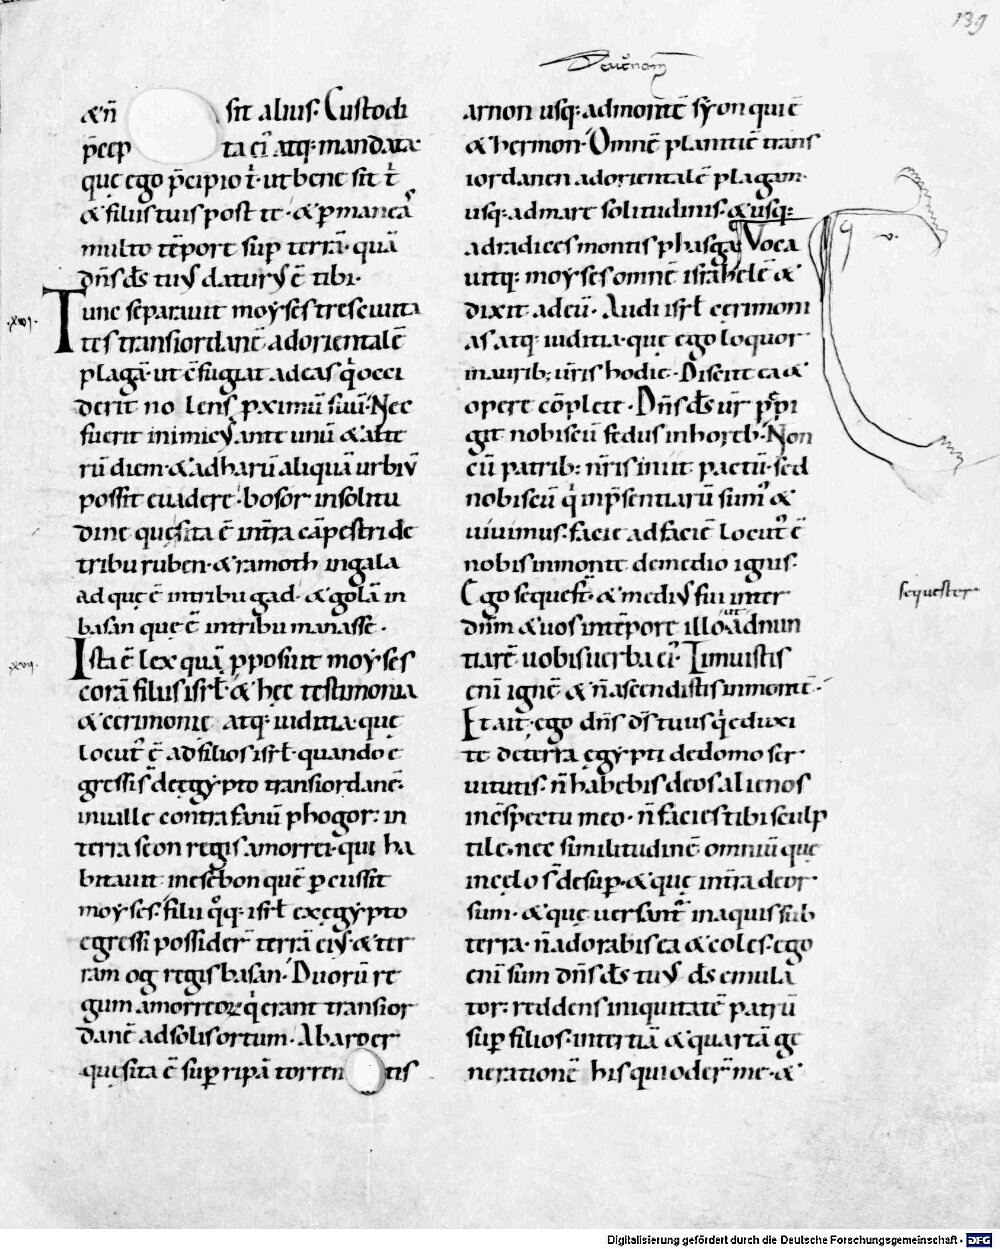 139
Deuteronom̄
&n̄ sit alius. Custodi
p̄cep ta ei᷒ atq: mandata
quę ego p̄cipio t̄. ut bene sit t̄
& filiis tuis post te. & p̄maneas
multo tēpore sup terrā. quā
dn̄s ds̄ tuus daturus ē tibi.
.xvi.
Tunc separavit moyses tres civita
tes transiordanē ad orientalē
plagā. ut c̄fugiat ad eas q̄ occi
derit nolens pximū suū. Nec
fuerit inimicus ante unū & alte
rū diem. & ad harū aliquā urbiū
possit evadere. bosor in solitu
dine que sita ē in t̄ra cāpestri de
tribu ruben. & ramoth in gala
ad quę ē in tribu gad. & golā in
basan quę ē in tribu manasse.
.xvii.
Ista ē lex quā pposuit moyses
corā filiis isrl̄. & hęc testimonia
& cerimonię atq: iuditia. quę
locut᷒ ē ad filios isrl̄. quando e
gressi s̄ de ęgypto transiordanē.
in valle contra fanū phogor. in
terra seon regis amorrei. qui ha
bitavit in esebon quē p̄cussit
moyses. filii q̊q: isrl̄ ex ęgypto
egressi possider̄ terrā eius. & ter
ram og regis basan. Duorū re
gum amorreoꝝ q̄ erant transior
danē ad solis ortum. Ab aroer
quę sita ē sup ripā torren tis
arnon usq: ad montē syon qui ē
& hermon. Omnē planitiē trans
iordanen ad orientalē plagam.
usq: ad mare solitudinis. & usq:
ad radices montis phasga. Voca
vitq: moyses omnē israhelē &
dixit ad eū. Audi isrl̄ cerimoni
as atq: iuditia. quę ego loquor
in aurib; v̄ris hodie. Discite ea &
opere cōplete. Dn̄s ds̄ n̄r pepi
git nobiscū fędus in horeb. Non
cū patrib: n̄ris iniit pactū. sed
nobiscū q̄ inp̄sentiarū sum᷒ &
vivimus. facie ad faciē locut᷒ ē
nobis in monte de medio ignis.
Ego sequest̄. & medius fui inter
sequester
dn̄m & vos in tēpore illo. ut adnun
tiarē vobis verba ei᷒. Timuistis
eni ignē & n̄ ascendistis in montē.
Et ait. ego dn̄s ds̄ tuus q̄ eduxi
te de terra ęgypti de domo ser
vitutis. n̄ habebis deos alienos
in c̄spectu meo. n̄ facies tibi sculp
tile. nec similitudinē omniū quę
in cęlo s̄ desup. & quę in t̄ra deor
sum. & quę versant᷒ in aquis sub
terra. n̄ adorabis ea & coles. ego
eni sum dn̄s ds̄ tuus. ds̄ emula
tor. reddens iniquitatē patrū
sup filios. in tertiā & quartā ge
nerationē his qui oder̄ me. &
Digitalisierung gefördert durch die Deutsche Forschungsgemeinschaft - DFG